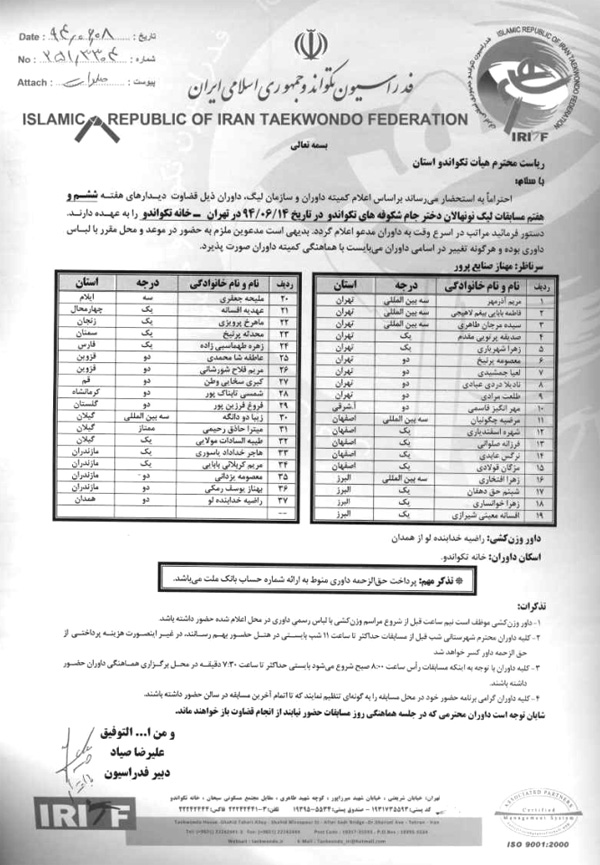 Date : ۹۴،۰۶،۰۸ تاریخ :
No : ۲۵۱/۳۳۰۴ شماره :
Attach : پیوست :
ISLAMIC REPUBLIC OF IRAN TAEKWONDO FEDERATION
IRITF
فدراسیون تکواندو جمهوری اسلامی ایران
ISLAMIC REPUBLIC OF IRAN TAEKWONDO FEDERATION
بسمه تعالی
ریاست محترم هیأت تکواندو استان
با سلام؛
احتراماً به استحضار می‌رساند براساس اعلام کمیته داوران و سازمان لیگ، داوران ذیل قضاوت دیدارهای هفته ششم و
هفتم مسابقات لیگ نونهالان دختر جام شکوفه های تکواندو در تاریخ ۹۴/۰۶/۱۴ در تهران – خانه تکواندو را به عهده دارند.
دستور فرمائید مراتب در اسرع وقت به داوران مدعو اعلام گردد. بدیهی است مدعوین ملزم به حضور در موعد و محل مقرر با لباس
داوری بوده و هرگونه تغییر در اسامی داوران می‌بایست با هماهنگی کمیته داوران صورت پذیرد.
سرناظر: مهناز صنایع پرور
ردیف نام و نام خانوادگی درجه استان
۱ مریم آذرمهر سه بین المللی تهران
۲ فاطمه بابایی بیغم لاهیجی سه بین المللی تهران
۳ سیده مرجان طاهری سه بین المللی تهران
۴ صدیقه پرتویی مقدم یک تهران
۵ زهرا شهریاری یک تهران
۶ معصومه پرنیخ دو تهران
۷ لعیا جمشیدی دو تهران
۸ نادیلا دردی عبادی دو تهران
۹ طلعت مرادی دو تهران
۱۰ مهر انگیز قاسمی دو آ.شرقی
۱۱ مرضیه چگونیان سه بین المللی اصفهان
۱۲ شهره اسفندیاری یک اصفهان
۱۳ فرزانه صلواتی یک اصفهان
۱۴ نرگس عابدی یک اصفهان
۱۵ مژگان فولادی یک اصفهان
۱۶ زهرا افتخاری سه بین المللی البرز
۱۷ شبنم حق دهقان یک البرز
۱۸ زهرا خوانساری یک البرز
۱۹ افسانه معینی شیرازی یک البرز
ردیف نام و نام خانوادگی درجه استان
۲۰ ملیحه جعفری سه ایلام
۲۱ عهدیه افسانه یک چهارمحال
۲۲ ماهرخ پرویزی یک زنجان
۲۳ محدثه پرنیخ یک سمنان
۲۴ زهره طهماسبی زاده یک فارس
۲۵ عاطفه شا محمدی دو قزوین
۲۶ مریم فلاح شورشانی دو قزوین
۲۷ کبری سخایی وطن دو قم
۲۸ شمسی تابناک پور دو کرمانشاه
۲۹ فروغ فرزین پور دو گلستان
۳۰ زیبا دو دانگه سه بین المللی گیلان
۳۱ میترا حاذق رحیمی ممتاز گیلان
۳۲ طیبه السادات مولایی یک گیلان
۳۳ هاجر خداداد یاسوری یک مازندران
۳۴ مریم کربلائی بابایی یک مازندران
۳۵ معصومه یزدانی دو مازندران
۳۶ بهناز یوسف رمکی دو مازندران
۳۷ راضیه خدابنده لو دو همدان
--
داور وزن‌کشی: راضیه خدابنده لو از همدان
اسکان داوران: خانه تکواندو.
تذکر مهم: پرداخت حق‌الزحمه داوری منوط به ارائه شماره حساب بانک ملت می‌باشد.
تذکرات:
۱- داور وزن‌کشی موظف است نیم ساعت قبل از شروع مراسم وزن‌کشی با لباس رسمی داوری در محل اعلام شده حضور داشته باشد.
۲- کلیه داوران محترم شهرستانی شب قبل از مسابقات حداکثر تا ساعت ۱۱ شب بایستی در هتل حضور بهم رسانند، در غیر اینصورت هزینه پرداختی از
حق الزحمه داور کسر خواهد شد
۳- کلیه داوران با توجه به اینکه مسابقات رأس ساعت ۸:۰۰ صبح شروع می‌شود بایستی حداکثر تا ساعت ۷:۳۰ دقیقه در محل برگزاری هماهنگی داوران حضور
داشته باشند.
۴- کلیه داوران گرامی برنامه حضور خود در محل مسابقه را به گونه‌ای تنظیم نمایند که تا اتمام آخرین مسابقه در سالن حضور داشته باشند.
شایان توجه است داوران محترمی که در جلسه هماهنگی روز مسابقات حضور نیابند از انجام قضاوت باز خواهند ماند.
و من ا... التوفیق
علیرضا صیاد
دبیر فدراسیون
IRITF
تهران، خیابان شریعتی، خیابان شهید میرزاپور، کوچه شهید طاهری، مقابل مجتمع مسکونی سبحان، خانه تکواندو
ASSOCIATED PARTNERS
Certified
Management System
ISO 9001:2000